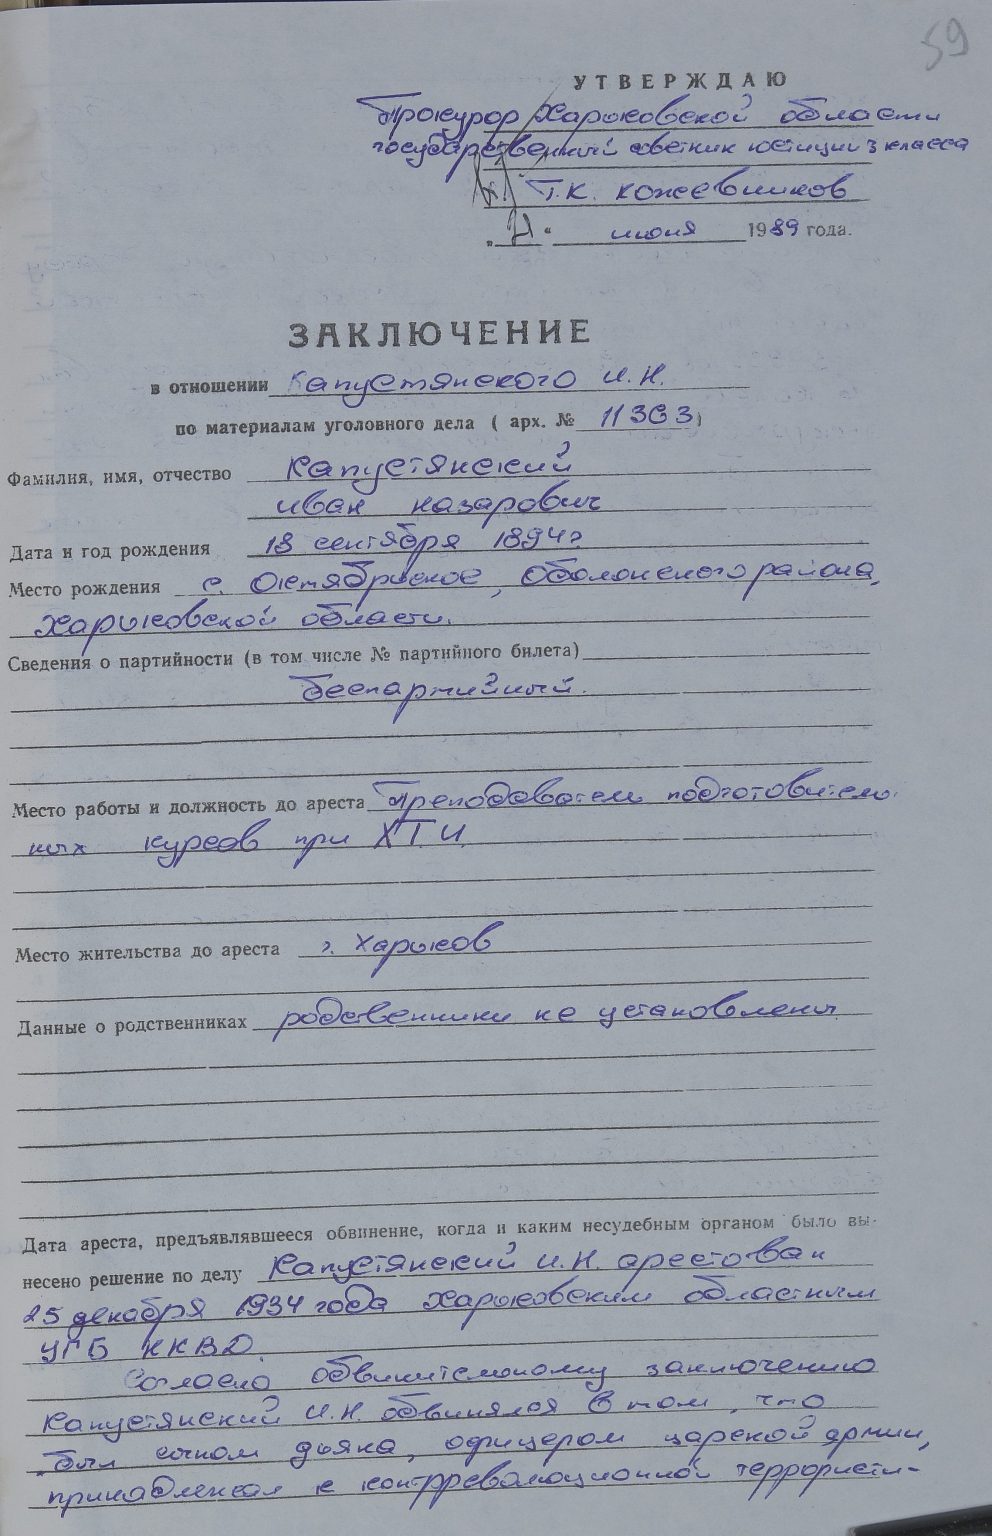 59
УТВЕРЖДАЮ
Прокурор Харьковской области
государственный советник юстиции 3 класса
Т.К. Кожевников
" " июня 1989 года.
ЗАКЛЮЧЕНИЕ
в отношении Капустянского И.Н.
по материалам уголовного дела ( арх. № 11363)
Фамилия, имя, отчество Капустянский
Иван Назарович
Дата и год рождения 18 сентября 1894 г.
Место рождения с. Октябрьское, Оболонского района,
Харьковской области.
Сведения о партийности (в том числе № партийного билета)
беспартийный.
Место работы и должность до ареста Преподаватель подготовитель-
ных курсов при ХТИ.
Место жительства до ареста г. Харьков
Данные о родственниках родственники не установлены
Дата ареста, предъявлявшееся обвинение, когда и каким несудебным органом было вы-
несено решение по делу Капустянский И.Н. арестован
25 декабря 1934 года Харьковским областным
УГБ НКВД.
Согласно обвинительному заключению
Капустянский И.Н. обвинялся в том, что
"был сыном дьяка, офицером царской армии,
принадлежал к контрреволюционной террористи-